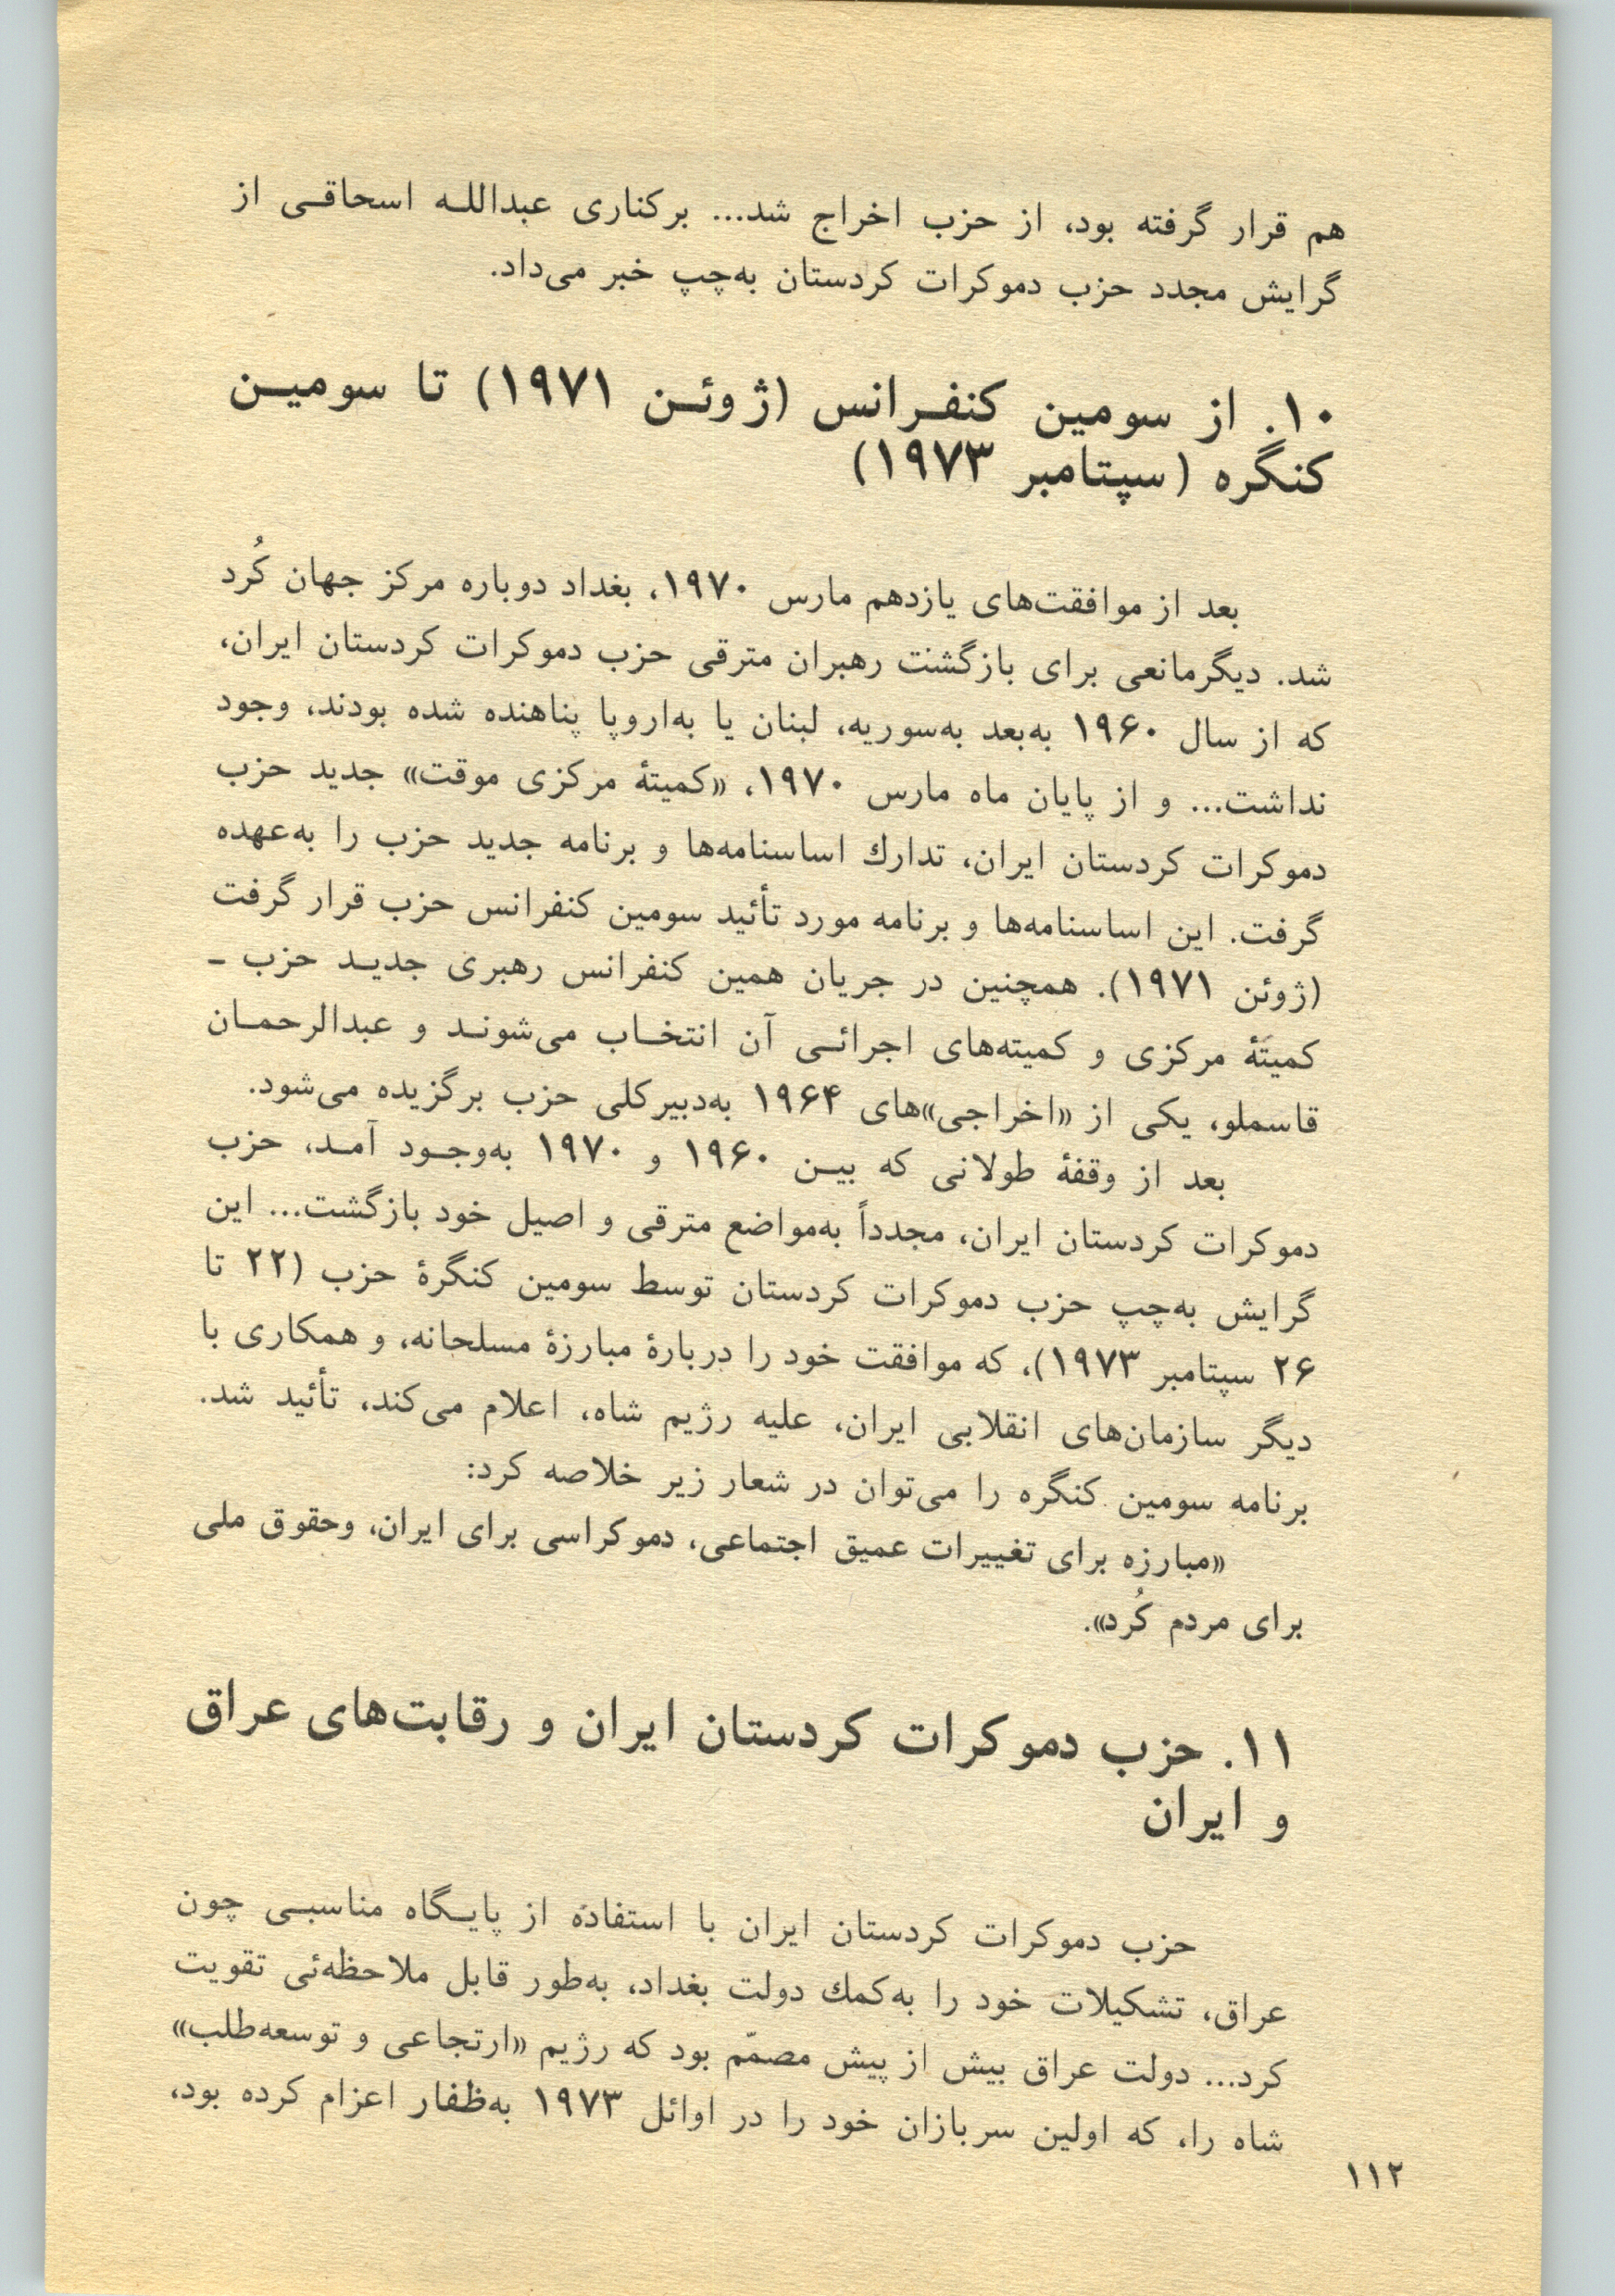 هم قرار گرفته بود، از حزب اخراج شد... برکناری عبدالله اسحاقی از
گرایش مجدد حزب دموکرات کردستان به‌چپ خبر می‌داد.
۱۰. از سومین کنفرانس (ژوئن ۱۹۷۱) تا سومین
کنگره (سپتامبر ۱۹۷۳)
بعد از موافقت‌های یازدهم مارس ۱۹۷۰، بغداد دوباره مرکز جهان کُرد
شد. دیگرمانعی برای بازگشت رهبران مترقی حزب دموکرات کردستان ایران،
که از سال ۱۹۶۰ به‌بعد به‌سوریه، لبنان یا به‌اروپا پناهنده شده بودند، وجود
نداشت... و از پایان ماه مارس ۱۹۷۰، «کمیتهٔ مرکزی موقت» جدید حزب
دموکرات کردستان ایران، تدارك اساسنامه‌ها و برنامه جدید حزب را به‌عهده
گرفت. این اساسنامه‌ها و برنامه مورد تأئید سومین کنفرانس حزب قرار گرفت
(ژوئن ۱۹۷۱). همچنین در جریان همین کنفرانس رهبری جدید حزب ـ
کمیتهٔ مرکزی و کمیته‌های اجرائی آن انتخاب می‌شوند و عبدالرحمان
قاسملو، یکی از «اخراجی»های ۱۹۶۴ به‌دبیرکلی حزب برگزیده می‌شود.
بعد از وقفهٔ طولانی که بین ۱۹۶۰ و ۱۹۷۰ به‌وجود آمد، حزب
دموکرات کردستان ایران، مجدداً به‌مواضع مترقی و اصیل خود بازگشت... این
گرایش به‌چپ حزب دموکرات کردستان توسط سومین کنگرهٔ حزب (۲۲ تا
۲۶ سپتامبر ۱۹۷۳)، که موافقت خود را دربارهٔ مبارزهٔ مسلحانه، و همکاری با
دیگر سازمان‌های انقلابی ایران، علیه رژیم شاه، اعلام می‌کند، تأئید شد.
برنامه سومین کنگره را می‌توان در شعار زیر خلاصه کرد:
«مبارزه برای تغییرات عمیق اجتماعی، دموکراسی برای ایران، وحقوق ملی
برای مردم کُرد».
۱۱. حزب دموکرات کردستان ایران و رقابت‌های عراق
و ایران
حزب دموکرات کردستان ایران با استفاده از پایگاه مناسبی چون
عراق، تشکیلات خود را به‌کمك دولت بغداد، به‌طور قابل ملاحظه‌ئی تقویت
کرد... دولت عراق بیش از پیش مصمّم بود که رژیم «ارتجاعی و توسعه‌طلب»
شاه را، که اولین سربازان خود را در اوائل ۱۹۷۳ به‌ظفار اعزام کرده بود،
۱۱۲